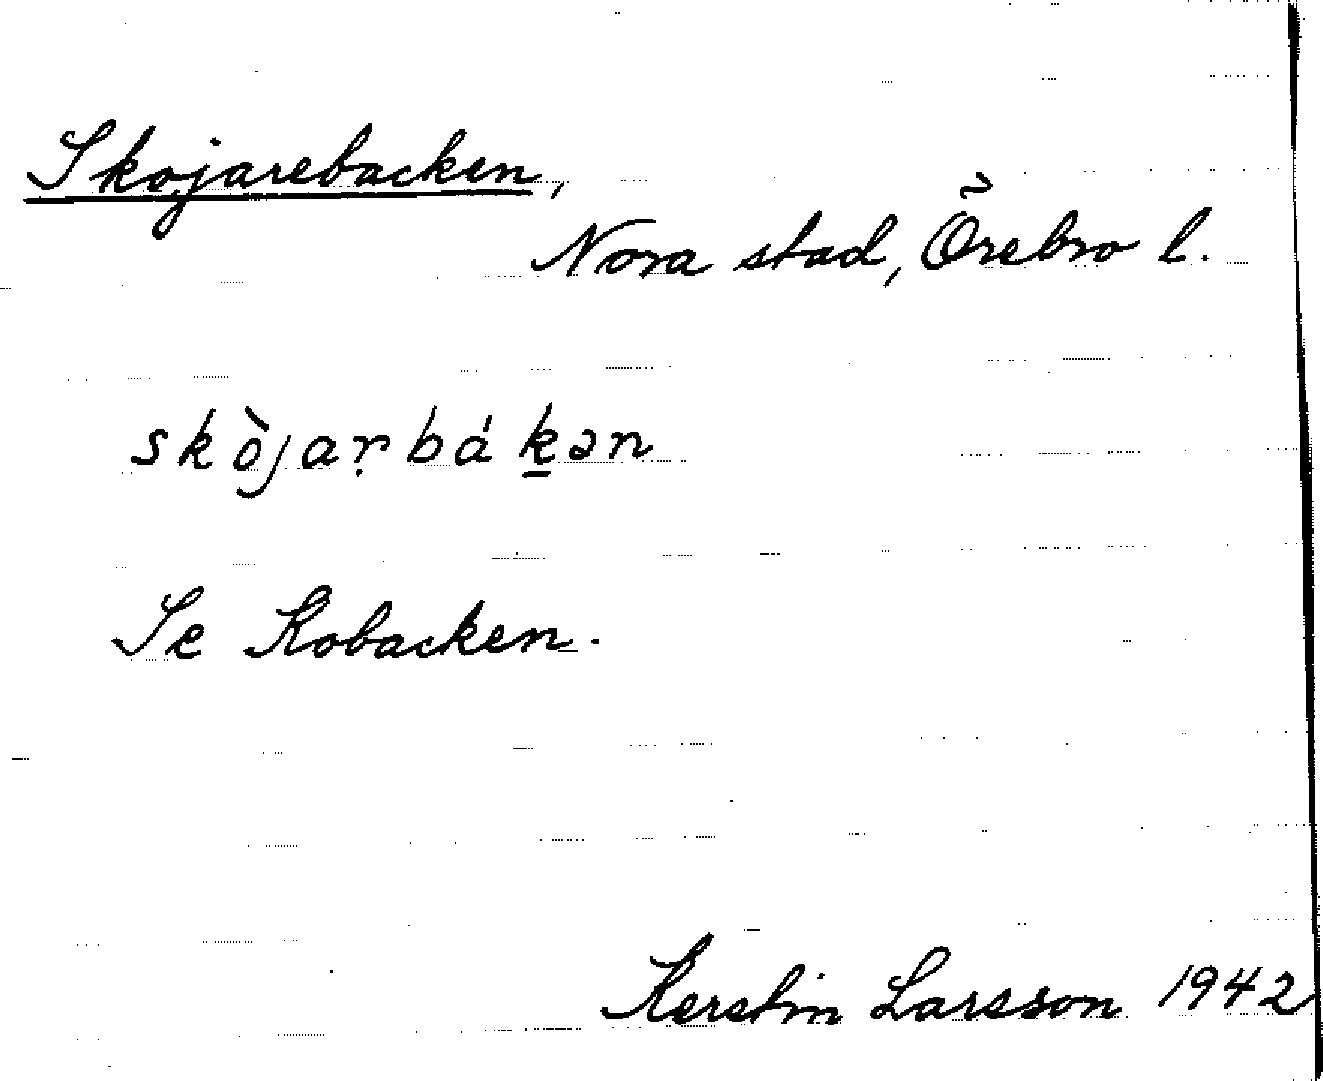 Skojarebacken,
Nora stad, Örebro l.
skòjaṛbáḵən
Se Kobacken.
Kerstin Larsson 1942